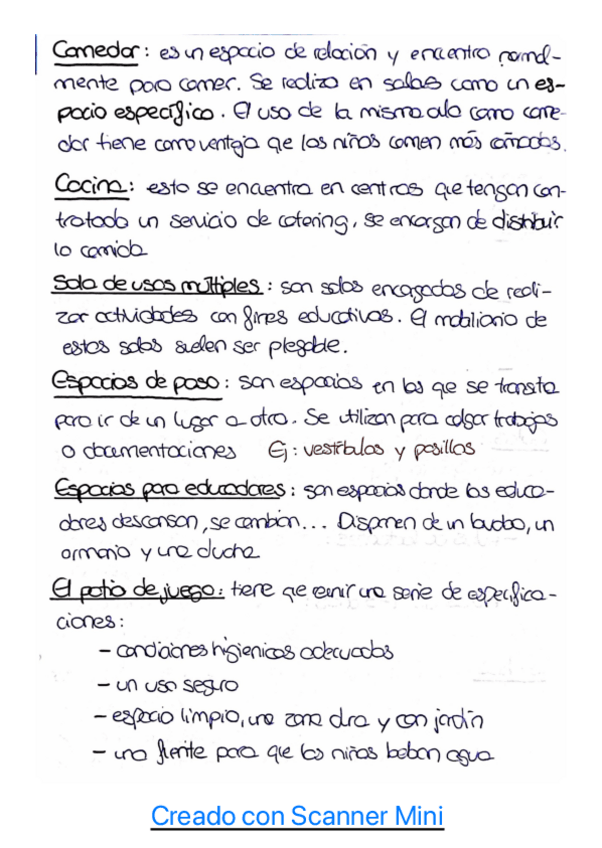 Comedor: es un espacio de relación y encuentro normal-
mente para comer. Se realiza en salas como un es-
pacio específico. El uso de la misma aula como come-
dor tiene como ventaja que los niños comen más cómodos.
Cocina: esto se encuentra en centros que tengan con-
tratado un servicio de catering, se encargan de distribuir
la comida
Sala de usos múltiples: son salas encargadas de reali-
zar actividades con fines educativos. El mobiliario de
estas salas suelen ser plegable.
Espacios de paso: son espacios en los que se transita
para ir de un lugar a otro. Se utilizan para colgar trabajos
o documentaciones Ej: vestíbulos y pasillos
Espacios para educadores: son espacios donde los educa-
dores descansan, se cambian... Disponen de un lavabo, un
armario y una ducha
El patio de juego: tiene que reunir una serie de especifica-
ciones:
- condiciones higienicas adecuadas
- un uso seguro
- espacio limpio, una zona dura y con jardín
- una fuente para que los niños beban agua
Creado con Scanner Mini